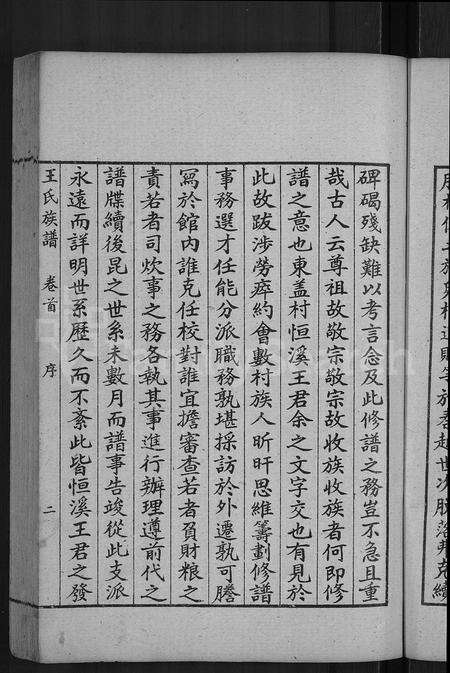 碑碣殘缺難以考言念及此修譜之務豈不急且重
哉古人云尊祖故敬宗敬宗故收族收族者何即修
譜之意也東盖村恒溪王君余之文字交也有見於
此故跋涉勞瘁約會數村族人昕旰思維籌劃修譜
事務選才任能分派職務孰堪採訪於外遷孰可謄
寫於館內誰克任校對誰宜擔審查若者負財粮之
責若者司炊事之務各執其事進行辦理遵前代之
譜牒續後昆之世系未數月而譜事告竣從此支派
永遠而詳明世系歷久而不紊此皆恒溪王君之發
王氏族譜 卷首 序 二